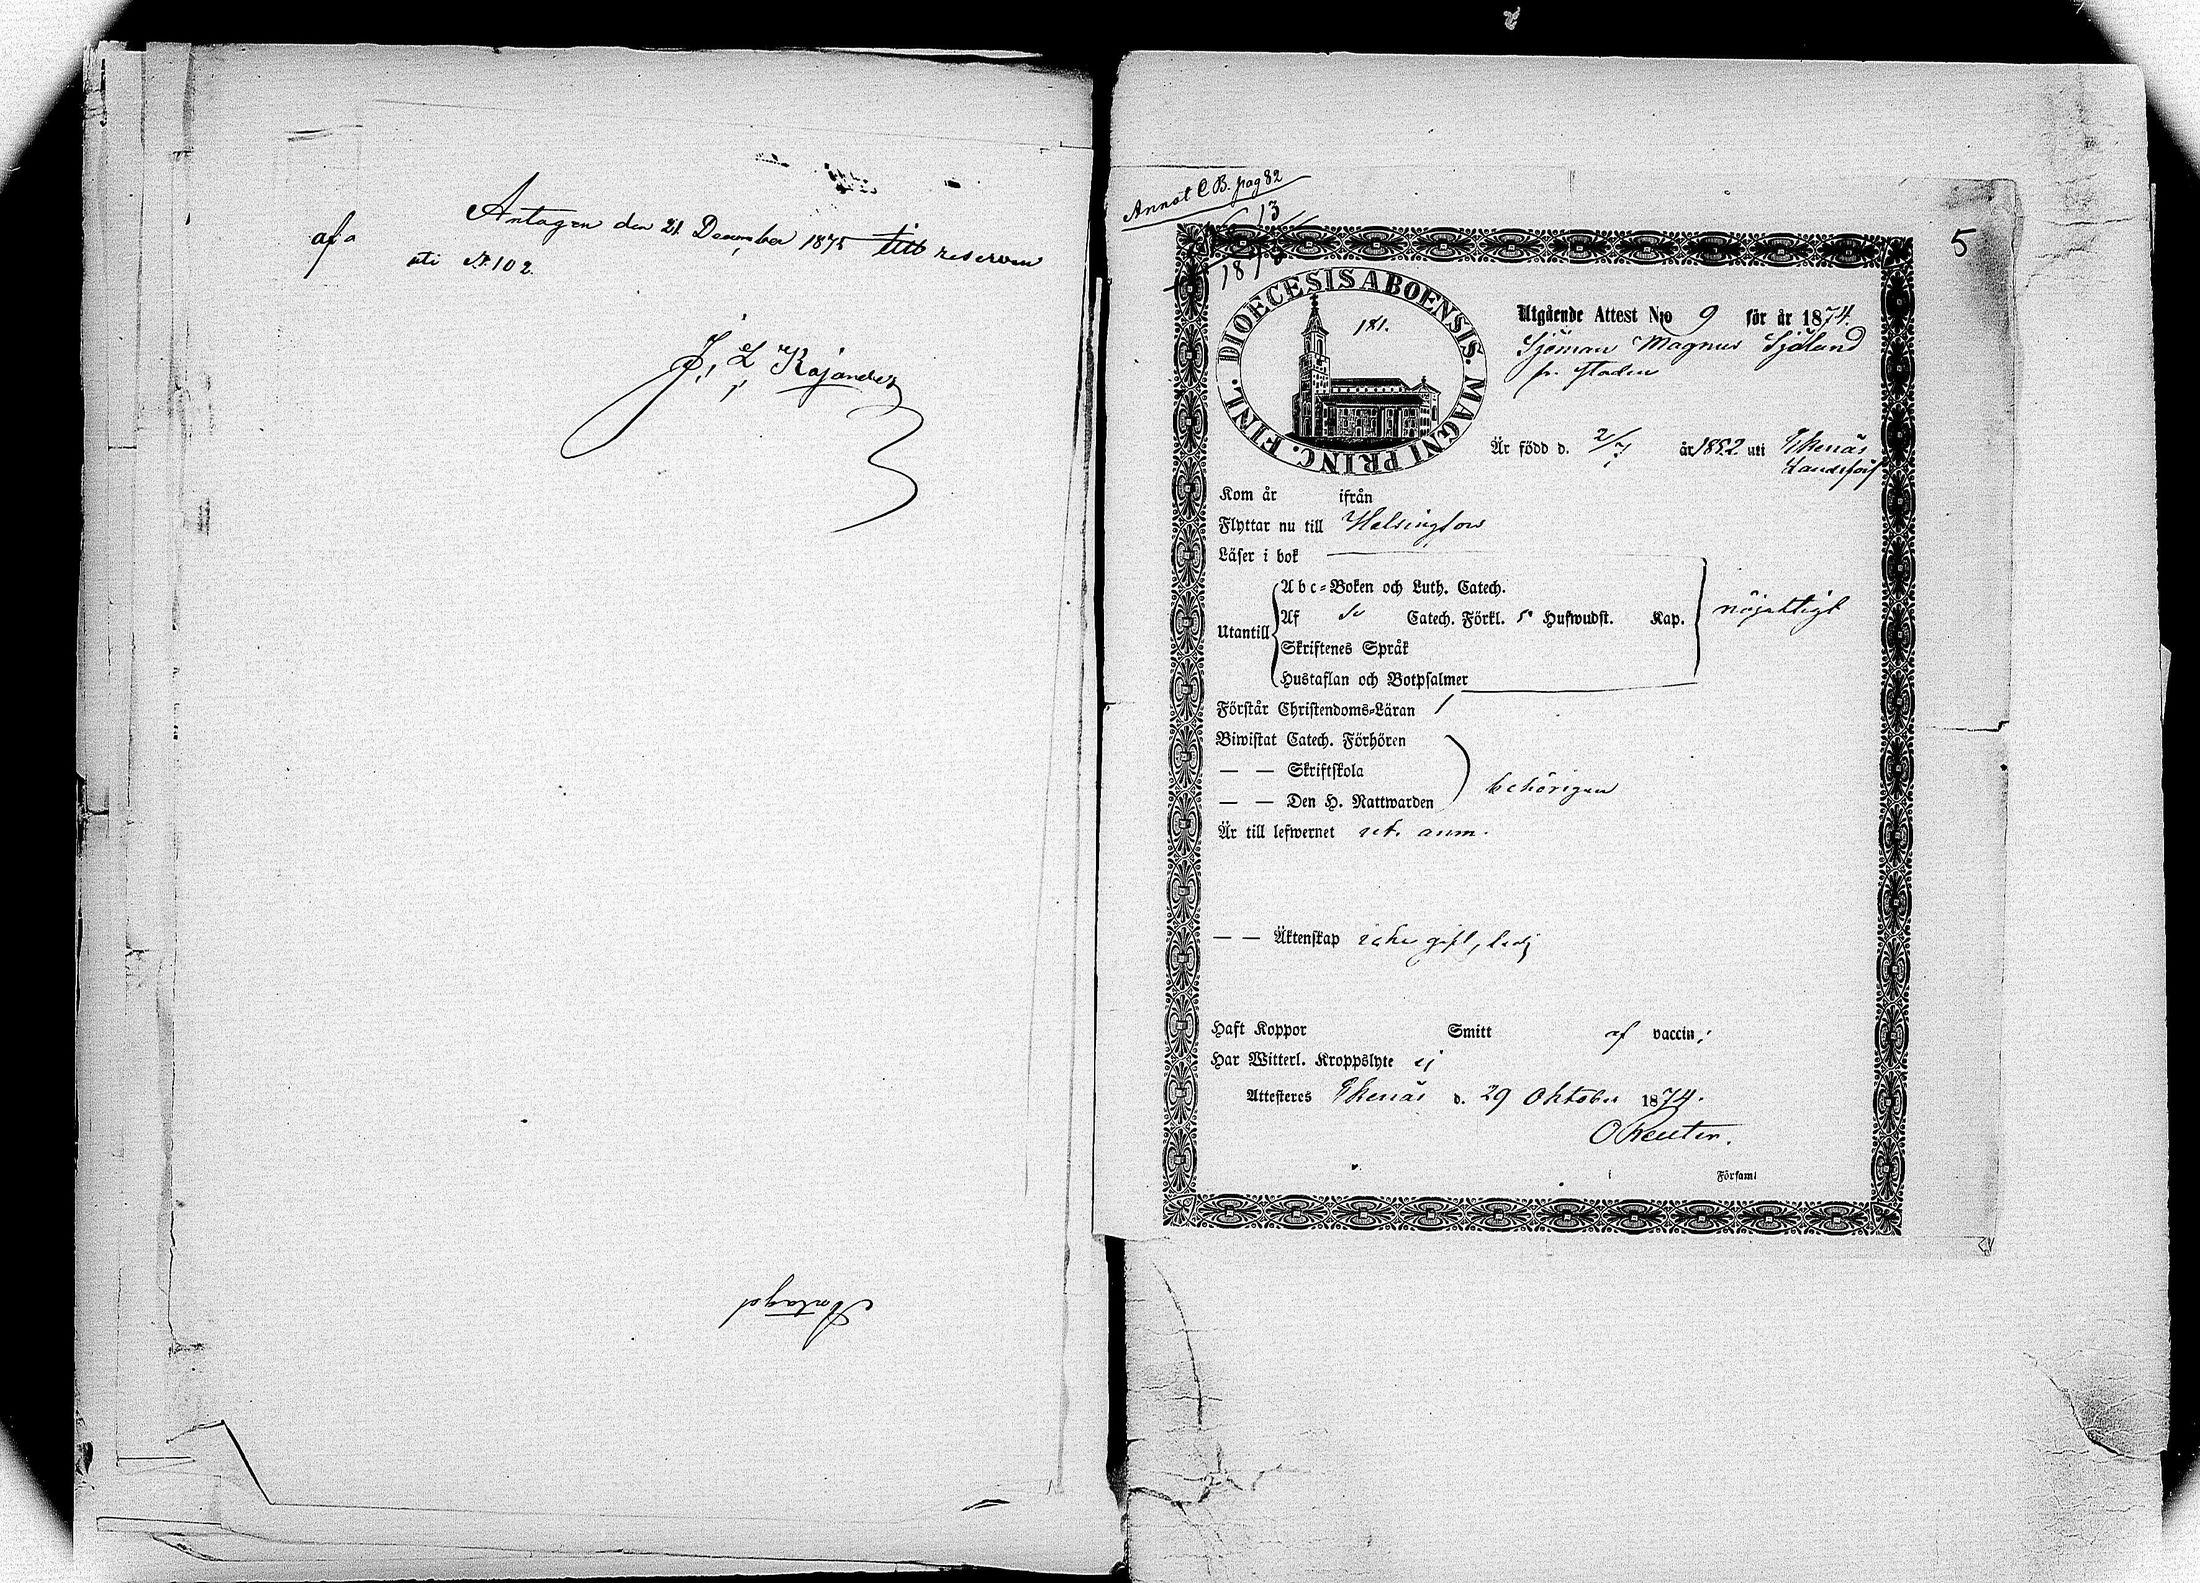 Antagen den 21 December 1875 till reserven
uti No 102.
J. L. Kajander
Antaget
Annot C B. pag 82
13
1875
5
DIOECESIS ABOENSIS. MAGNI PRINC. FINL.
181.
Utgående Attest N:o 9 för år 1874.
Sjöman Magnus Sjölund
fr. staden
Är född d. 2/7 år 1852 uti Ekenäs
Landsförs
Kom år ifrån
Flyttar nu till Helsingfors
Läser i bok
Abc-Boken och Luth. Catech.
Utantill Af Catech. Förkl. 5 Hufwudst. Kap. nöjaktigt
Skriftenes Språk
Hustaflan och Botpsalmer
Förstår Christendoms-Läran
Biwistat Catech. Förhören
— — Skriftskola
— — Den H. Nattwarden behörigen
Är till lefwernet ut. anm.
— — Äktenskap icke gift, ledig
Haft Koppor Smitt af vaccin;
Har Witterl. Kroppslyte ej
Attesteres Ekenäs d. 29 Oktober 1874.
O Reuter.
Församl